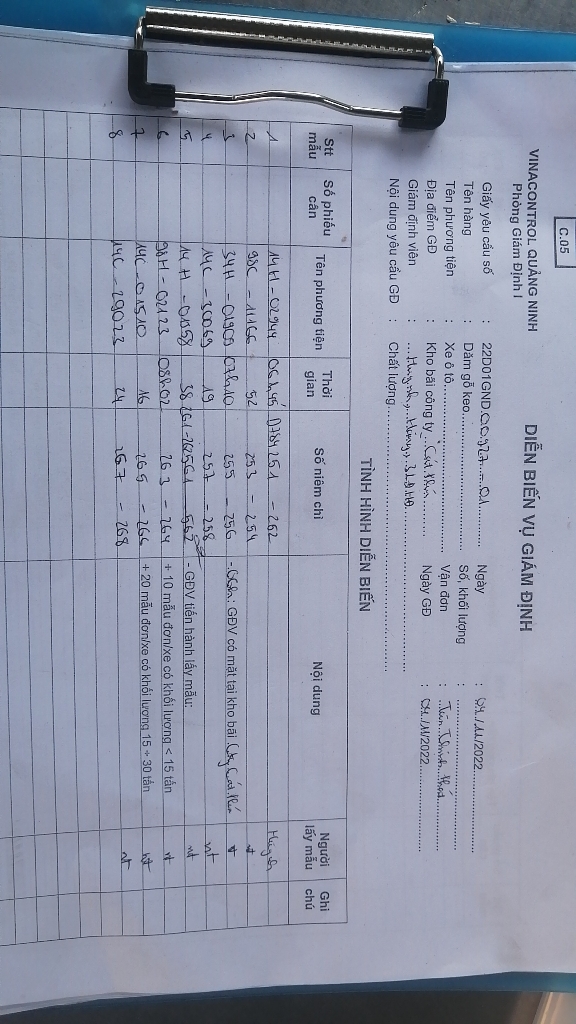 C.05
VINACONTROL QUẢNG NINH
Phòng Giám Định I
DIỄN BIẾN VỤ GIÁM ĐỊNH
Giấy yêu cầu số : 22D01GND.00927-01 Ngày : 04/11/2022
Tên hàng : Dăm gỗ keo Số, khối lượng :
Tên phương tiện : Xe ô tô Vận đơn :
Địa điểm GĐ : Kho bãi công ty Ngày GĐ : 04/11/2022
Giám định viên :
Nội dung yêu cầu GĐ : Chất lượng
TÌNH HÌNH DIỄN BIẾN
Stt mẫu Số phiếu cân Tên phương tiện Thời gian Số niêm chì Nội dung Người lấy mẫu Ghi chú
1 14H-02944 06h45 0784251-252 Huỳnh
2 98C-11166 52 253-254 nt
3 34H-01900 07h10 255-256 -06h: GĐV có mặt tại kho bãi Cty nt
4 14C-30069 19 257-258 nt
5 14H-01358 38 - GĐV tiến hành lấy mẫu: nt
6 98H-02123 08h02 263-264 + 10 mẫu đơn/xe có khối lượng < 15 tấn nt
7 14C-01510 16 265-266 + 20 mẫu đơn/xe có khối lượng 15 ÷ 30 tấn nt
8 14C-29023 24 267-268 nt